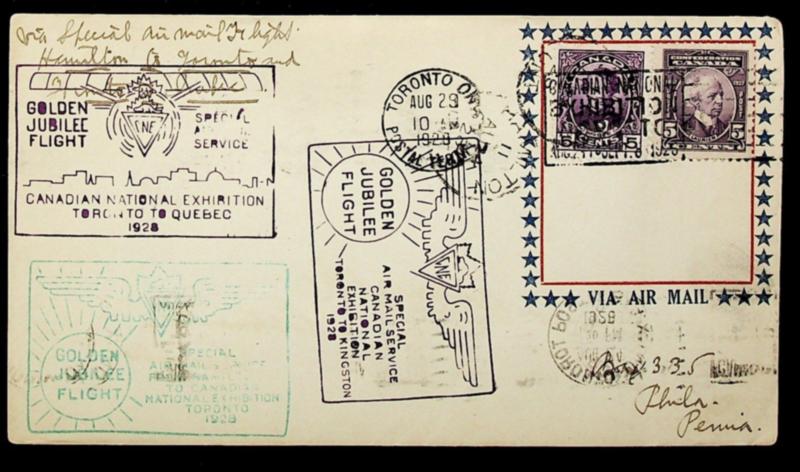 via Special air mail Flight
Hamilton to Toronto and
GOLDEN
JUBILEE
FLIGHT
SPECIAL
SERVICE
CNE
CANADIAN NATIONAL EXHIBITION
TORONTO TO QUEBEC
1928
TORONTO ON
AUG 29
10
1928
POSTAL TERM
GOLDEN
JUBILEE
FLIGHT
CNE
SPECIAL
AIR MAIL SERVICE
CANADIAN
NATIONAL
EXHIBITION
TORONTO TO KINGSTON
1928
GOLDEN
JUBILEE
FLIGHT
SPECIAL
AIR MAIL
TO CANADIAN
NATIONAL EXHIBITION
TORONTO
1928
CANADIAN NATIONAL
EXHIBITION
CONFEDERATION
CANADA
5 CENTS 5
5 5
VIA AIR MAIL
Box 335
Phila.
Penna.